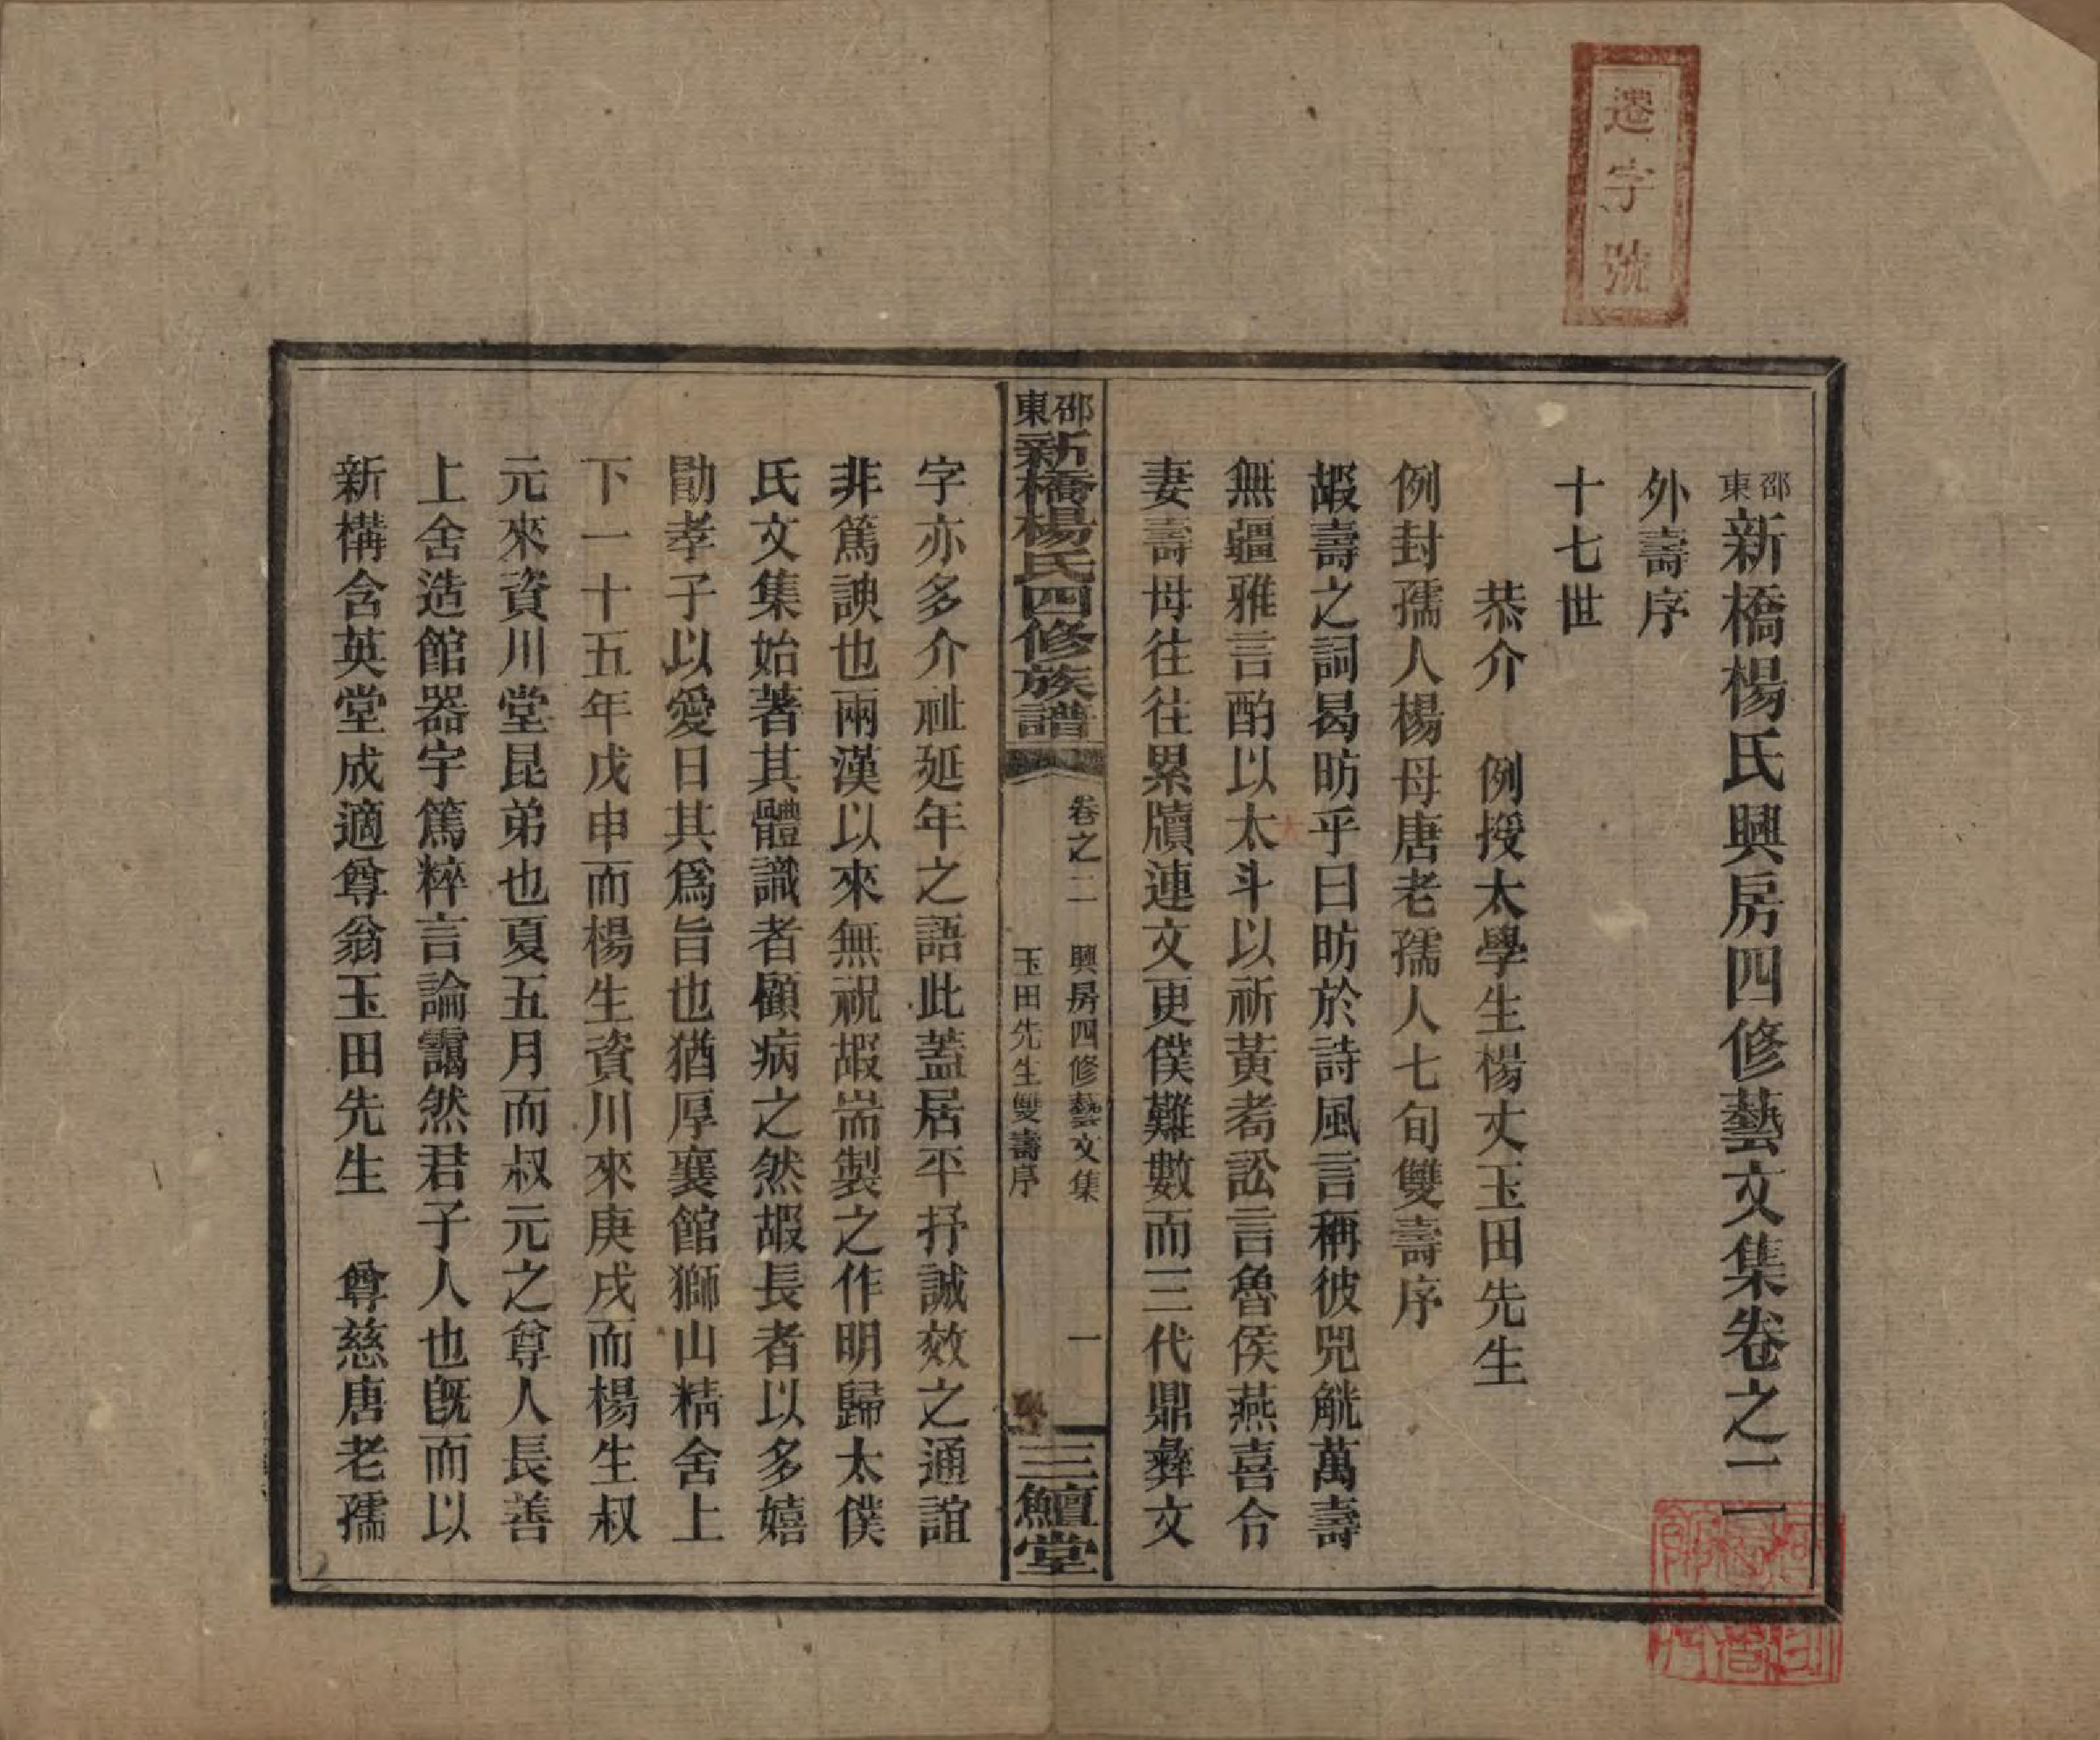 遷字號
邵東新橋楊氏興房四修藝文集卷之二
外壽序
十七世
恭介　例授太學生楊丈玉田先生
例封孺人楊母唐老孺人七旬雙壽序
嘏壽之詞曷昉乎曰昉於詩風言稱彼兕觥萬壽
無疆雅言酌以太斗以祈黃耇訟言魯侯燕喜令
妻壽母往往累牘連文更僕難數而三代鼎彝文
邵東新橋楊氏四修族譜
卷之二　興房四修藝文集　一
玉田先生雙壽序
三鱣堂
字亦多介祉延年之語此蓋居平抒誠效之通誼
非篤諛也兩漢以來無祝嘏耑製之作明歸太僕
氏文集始著其體識者顧病之然嘏長者以多嬉
勖孝子以愛日其爲旨也猶厚襄館獅山精舍上
下一十五年戊申而楊生資川來庚戌而楊生叔
元來資川堂昆弟也夏五月而叔元之尊人長善
上舍造館器宇篤粹言論靄然君子人也旣而以
新構含英堂成適尊翁玉田先生　尊慈唐老孺